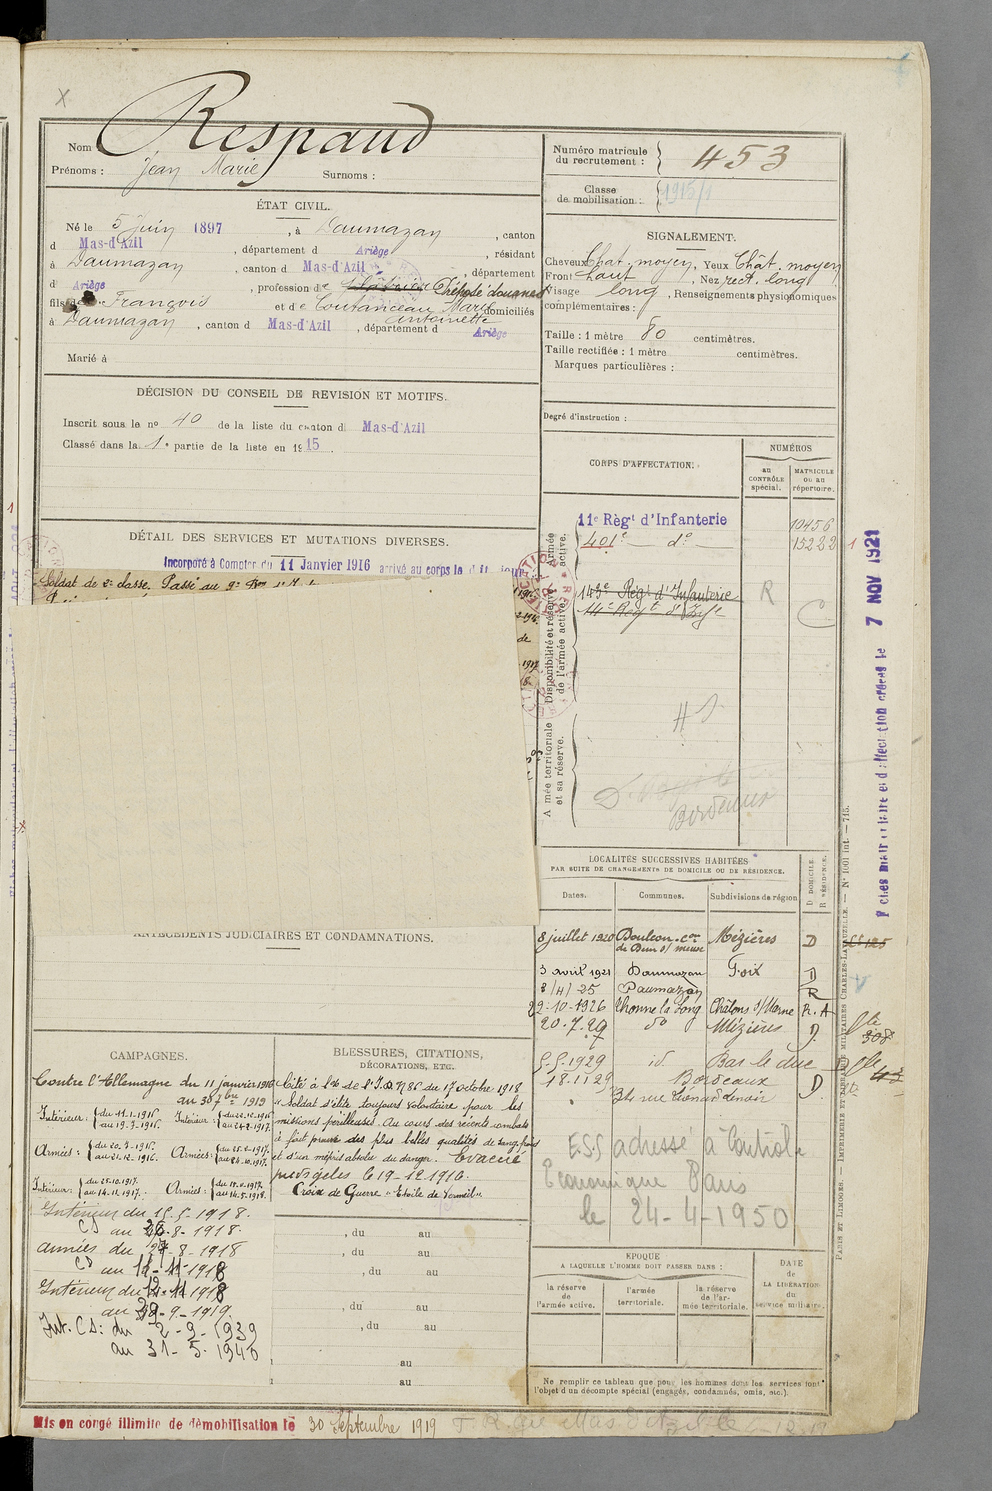 Respaud
Nom
Prénoms : Jean Marie Surnoms :
Numéro matricule
du recrutement : 453
Classe
de mobilisation : 1915/1
ÉTAT CIVIL.
Né le 5 Juin 1897, à Daumazan, canton
d Mas-d'Azil, département d Ariège, résidant
à Daumazan, canton d Mas-d'Azil, département
d' Ariège, profession de Préposé douanes
fils de François et de Coutanceau Marie Antoinette domiciliés
à Daumazan, canton d Mas-d'Azil, département d Ariège
Marié à
SIGNALEMENT.
Cheveux Chat. moyen, Yeux Chât. moyen
Front haut, Nez rect. long
Visage long, Renseignements physionomiques
complémentaires :
Taille : 1 mètre 80 centimètres.
Taille rectifiée : 1 mètre centimètres.
Marques particulières :
Degré d'instruction :
DÉCISION DU CONSEIL DE REVISION ET MOTIFS.
Inscrit sous le no 40 de la liste du canton d Mas-d'Azil
Classé dans la 1e partie de la liste en 1915.
DÉTAIL DES SERVICES ET MUTATIONS DIVERSES.
Incorporé à Compter du 11 Janvier 1916 arrivé au corps le d it jour
Soldat de 2e classe. Passé au 9e
CORPS D'AFFECTATION.
NUMÉROS
au
CONTRÔLE
spécial.
MATRICULE
ou au
répertoire.
Armée
active.
11e Régt d'Infanterie 10456
401e do 15282
Disponibilité et réserve
de l'armée active.
143e Régt d'Infanterie R
14e Régt d'Infie
Armée territoriale
et sa réserve.
Bordeaux
7 NOV 1921
LOCALITÉS SUCCESSIVES HABITÉES
PAR SUITE DE CHANGEMENTS DE DOMICILE OU DE RÉSIDENCE.
Dates. Communes. Subdivisions de région
D DOMICILE.
R RÉSIDENCE.
8 juillet 1920 Mézières D
3 avril 1921 Daumazan Foix D
3/4/25 Daumazan R
22-10-1926 Thonne la Long Châlons s/Marne R. A
20.7.27 do Mézières D.
5.5.1929 id. Bar le duc
18.11.29 Bordeaux D.
rue Léonard Lenoir
ESS adressé à Contrôle
Economique Paris
le 24-4-1950
ANTÉCÉDENTS JUDICIAIRES ET CONDAMNATIONS.
CAMPAGNES.
Contre l'Allemagne du 11 janvier 1916
au 30 7bre 1919
Intérieur : du 11.1.1916. au 19.9.1916.
Intérieur : du 22.12.1916 au 24.2.1917.
Armées : du 20.9.1916. au 21.12.1916.
Armées : du 25.2.1917. au 24.10.1917.
Intérieur : du 25.10.1917. au 14.11.1917.
Armées : au 14.5.1918.
Intérieur du 15.5.1918.
CS au 26.8.1918.
armées du 27-8-1918
CD au 11-11-1918
Intérieur du 12-11-1918
au 29-9-1919
Int. CS : du 2-9-1939
au 31-5-1940
BLESSURES, CITATIONS,
DÉCORATIONS, ETC.
Cité à l'o/o de l'I.D. No 86 du 17 octobre 1918
"Soldat d'élite toujours volontaire pour les
missions périlleuses. Au cours des récents combats
a fait preuve des plus belles qualités de sang froid
et d'un mépris absolu du danger. Evacué
pieds gelés le 19-12-1916.
Croix de Guerre "Etoile de Vermeil".
, du au
, du au
, du au
, du au
, du au
au
au
ÉPOQUE
A LAQUELLE L'HOMME DOIT PASSER DANS :
la réserve
de
l'armée active.
l'armée
territoriale.
la réserve
de l'ar-
mée territoriale.
DATE
de
LA LIBÉRATION
du
service militaire.
Ne remplir ce tableau que pour les hommes dont les services font
l'objet d'un décompte spécial (engagés, condamnés, omis, etc.).
Mis en congé illimité de démobilisation le 30 Septembre 1919
PARIS ET LIMOGES. — IMPRIMERIE ET LIBRAIRIE MILITAIRES CHARLES-LAVAUZELLE. — No 1001 int. — 715.